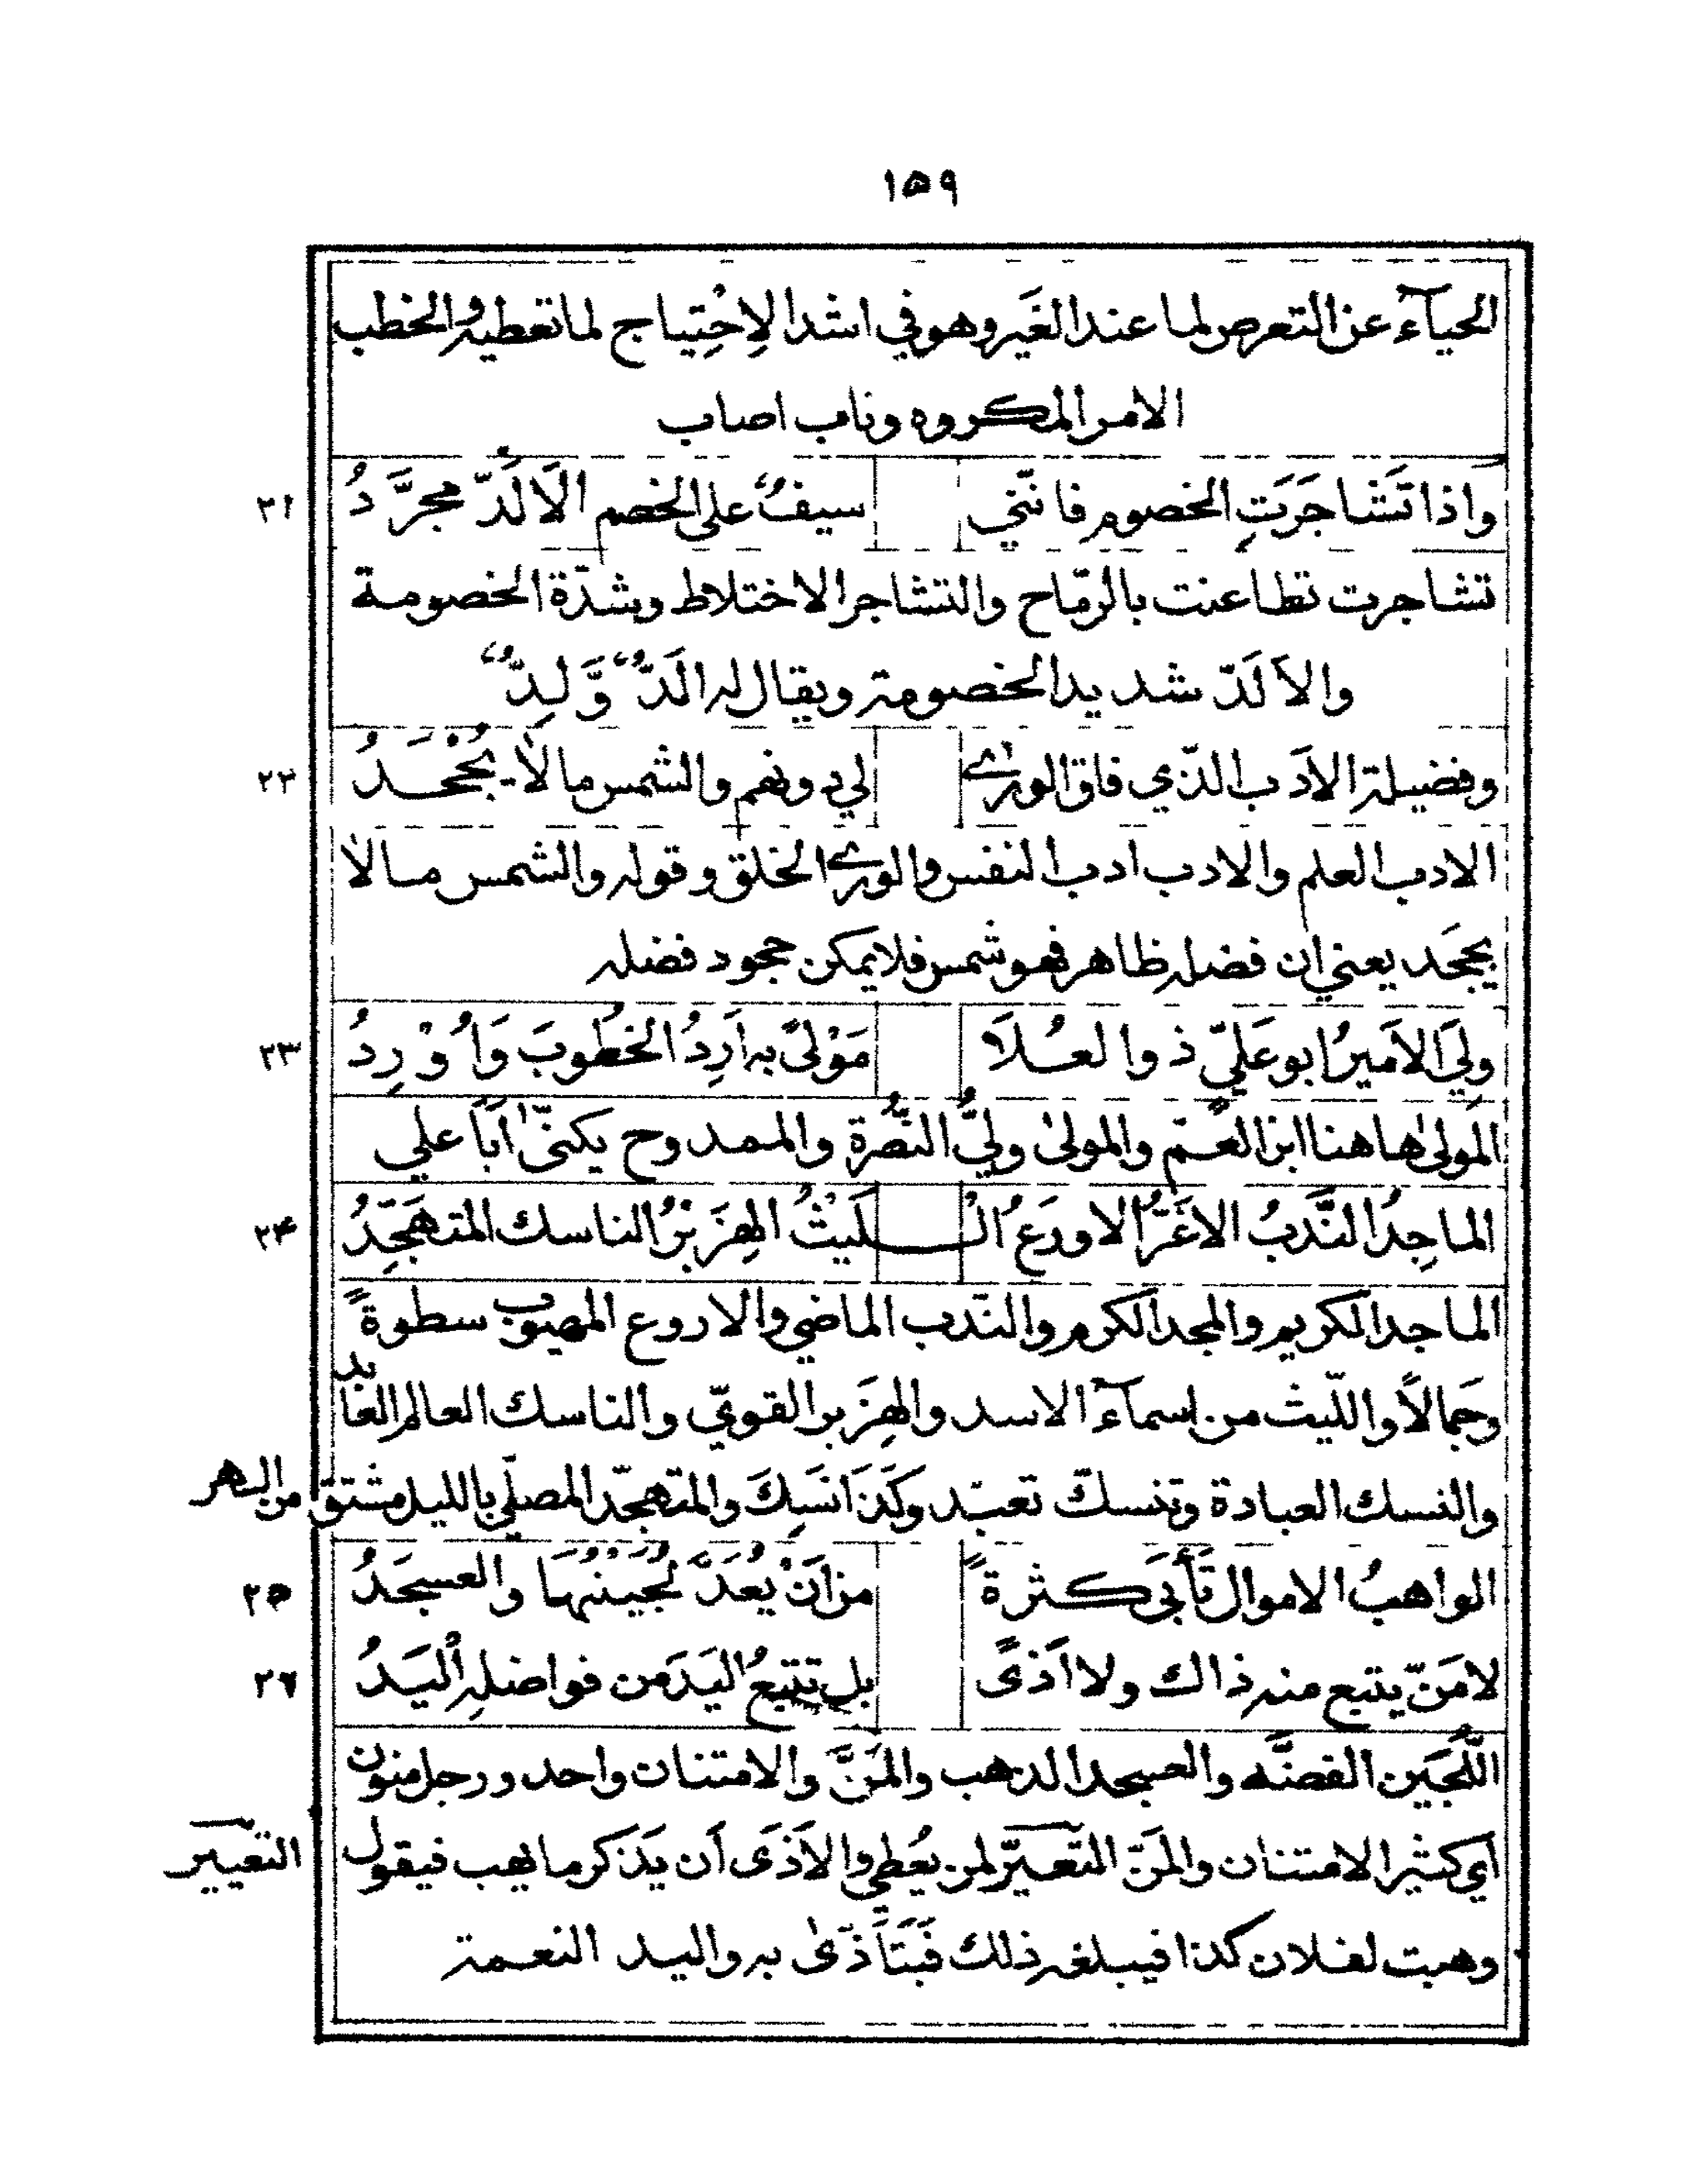 ١٥٩
الحيآء عن التعرض لما عند الغَير وهو في اشد الاِحْتِياج لما تعطيه والخطب
الامر المكروه وناب اصاب
واذا تَشَاجَرَتِ الخصوم فانّني سيفٌ على الخصم الاَلَدّ مجرَّدُ ٢١
تشاجرت تطاعنت بالرّماح والتشاجر الاختلاط وشدّة الخصومة
والاَلَدّ شديد الخصومة ويقال له الَدٌّ وَّلِدٌّ
وفضيلة الاَدب الذّي فاق الورىٰ لي دونهم والشمس مالاٰ يُجْحَدُ ٢٢
الادب العلم والادب ادب النفس والورىٰ الخلق وقوله والشمس مالاٰ
يجحَد يعني ان فضله ظاهر فهو شمس فلا يمكن جحود فضله
ولِيَ الاَميرُ ابو عَليّ ذو العُلَا مَوْلىً به اَرِدُ الخطُوبَ وَاُوْرِدُ ٢٣
المَولىٰ هاهنا ابن العَمّ والمولىٰ وليُّ النُّصْرة والممدوح يكنىّٰ اَبَا علي
الماجِدُ النَّدبُ الاغَرُّ الاورَعُ الْـ ـلَيثُ الهِزَبْرُ الناسك المتهَجِّدُ ٢٤
الماجد الكريم والمجد الكرم والنّدب الماضي والاروع المهيوب سطوةً
وجَمالاً واللّيث من اسمآء الاسد والهِزَبر القويّ والناسك العالم العابد
والنسك العبادة وتنسكّ تعبّد وكَذَا نَسَكَ والمتهجّد المصلّي بالليل مشتق من السهر
الواهبُ الاموال تَأبَى كثرةً من اَنْ يُعَدَّ لُجَيْنُهَا والعسجَدُ ٢٥
لا مَنّ يتبع منه ذاك ولا اَذىً بل تتبعُ اليَدَ من فواضلِهِ اْليَدُ ٢٦
اللُّجَين الفضّة والعسجد الذهب والمَنَّ والامتنان واحد ورجل منون
اَي كثير الامتنان والمَنّ التعييرّ لمن يُعطي والاَذَى اَن يَذكر ما يهب فيقول
التعيير
وهبت لفلان كذا فيبلغه ذلك فَيَتَأَذّىٰ به واليد النعمة